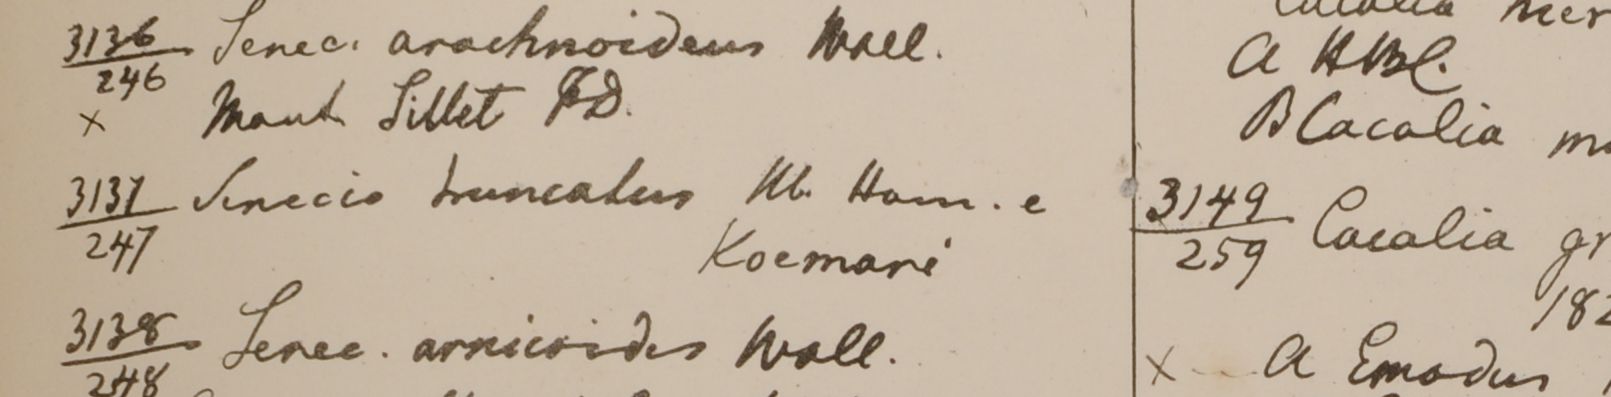 3136/246 Senec. arachnoideus Wall.
× Mont. Sillet FD.
3137/247 Senecio truncatus Hb. Ham. e
Koemani
3138/248 Senec. arnicoides Wall.
Cacalia
A HBC.
B Cacalia
3149/259 Cacalia gr
182
× A Emodus